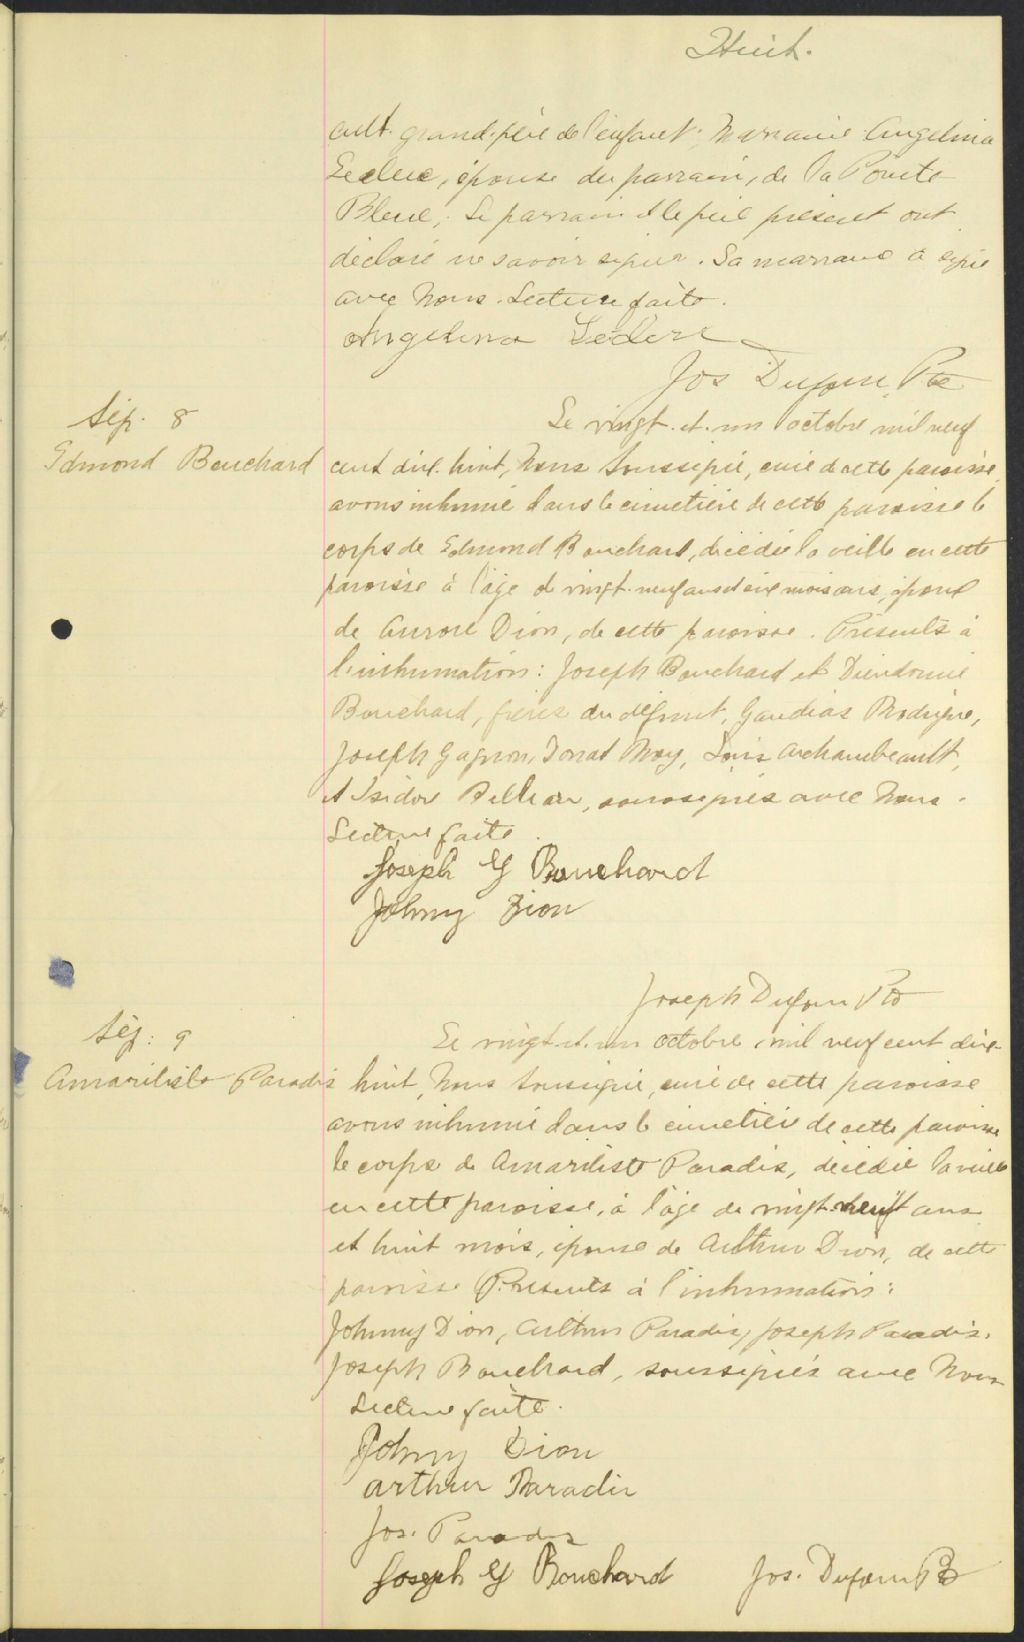 Huit.
cult. grand-père de l'enfant; Marraine Angelina
Leclerc, épouse du parrain, de la Pointe
Bleue; Le parrain et le père présent ont
déclaré ne savoir signer. La marraine a signé
avec Nous. Lecture faite.
Angelina Leclerc
Jos Dufour, Ptre
Sép. 8
Edmond Bouchard
Le vingt-et-un octobre mil neuf
cent dix-huit, Nous soussigné, curé de cette paroisse,
avons inhumé dans le cimetière de cette paroisse le
corps de Edmond Bouchard, décédé la veille en cette
paroisse à l'âge de vingt-neuf ans et mois, époux
de Aurore Dion, de cette paroisse. Présents à
l'inhumation: Joseph Bouchard et Dieudonné
Bouchard, frères du défunt, Gaudias Rodrigue,
Joseph Gagnon, Donat Roy, Louis Archambeault,
et Isidore, soussignés avec Nous.
Lecture faite.
Joseph G Bouchard
Johny Dion
Joseph Dufour Ptre
Sép: 9
Amariliste Paradis
Le vingt-et-un octobre mil neuf cent dix-
huit, Nous soussigné, curé de cette paroisse
avons inhumé dans le cimetière de cette paroisse
le corps de Amariliste Paradis, décédée la veille
en cette paroisse, à l'âge de vingt-neuf ans
et huit mois, épouse de Arthur Dion, de cette
paroisse Présents à l'inhumation:
Johnny Dion, Arthur Paradis, Joseph Paradis.
Joseph Bouchard, soussignés avec Nous
Lecture faite.
Johny Dion
arthur Paradis
Jos. Paradis
Joseph G Bouchard Jos. Dufour Ptre